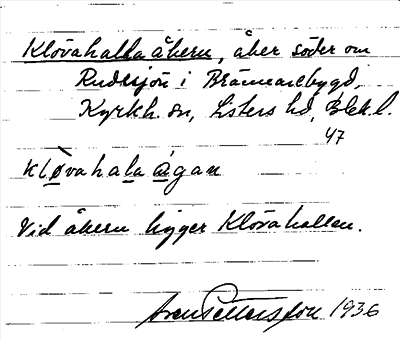 Klövahalla åkern, åker söder om
Rudesjön i Brännarebygd,
Kyrkh. sn, Listers hd, Blek. l.
47
kløvahala ágan
Vid åkern ligger Klövahallen.
Sven Pettersson 1936